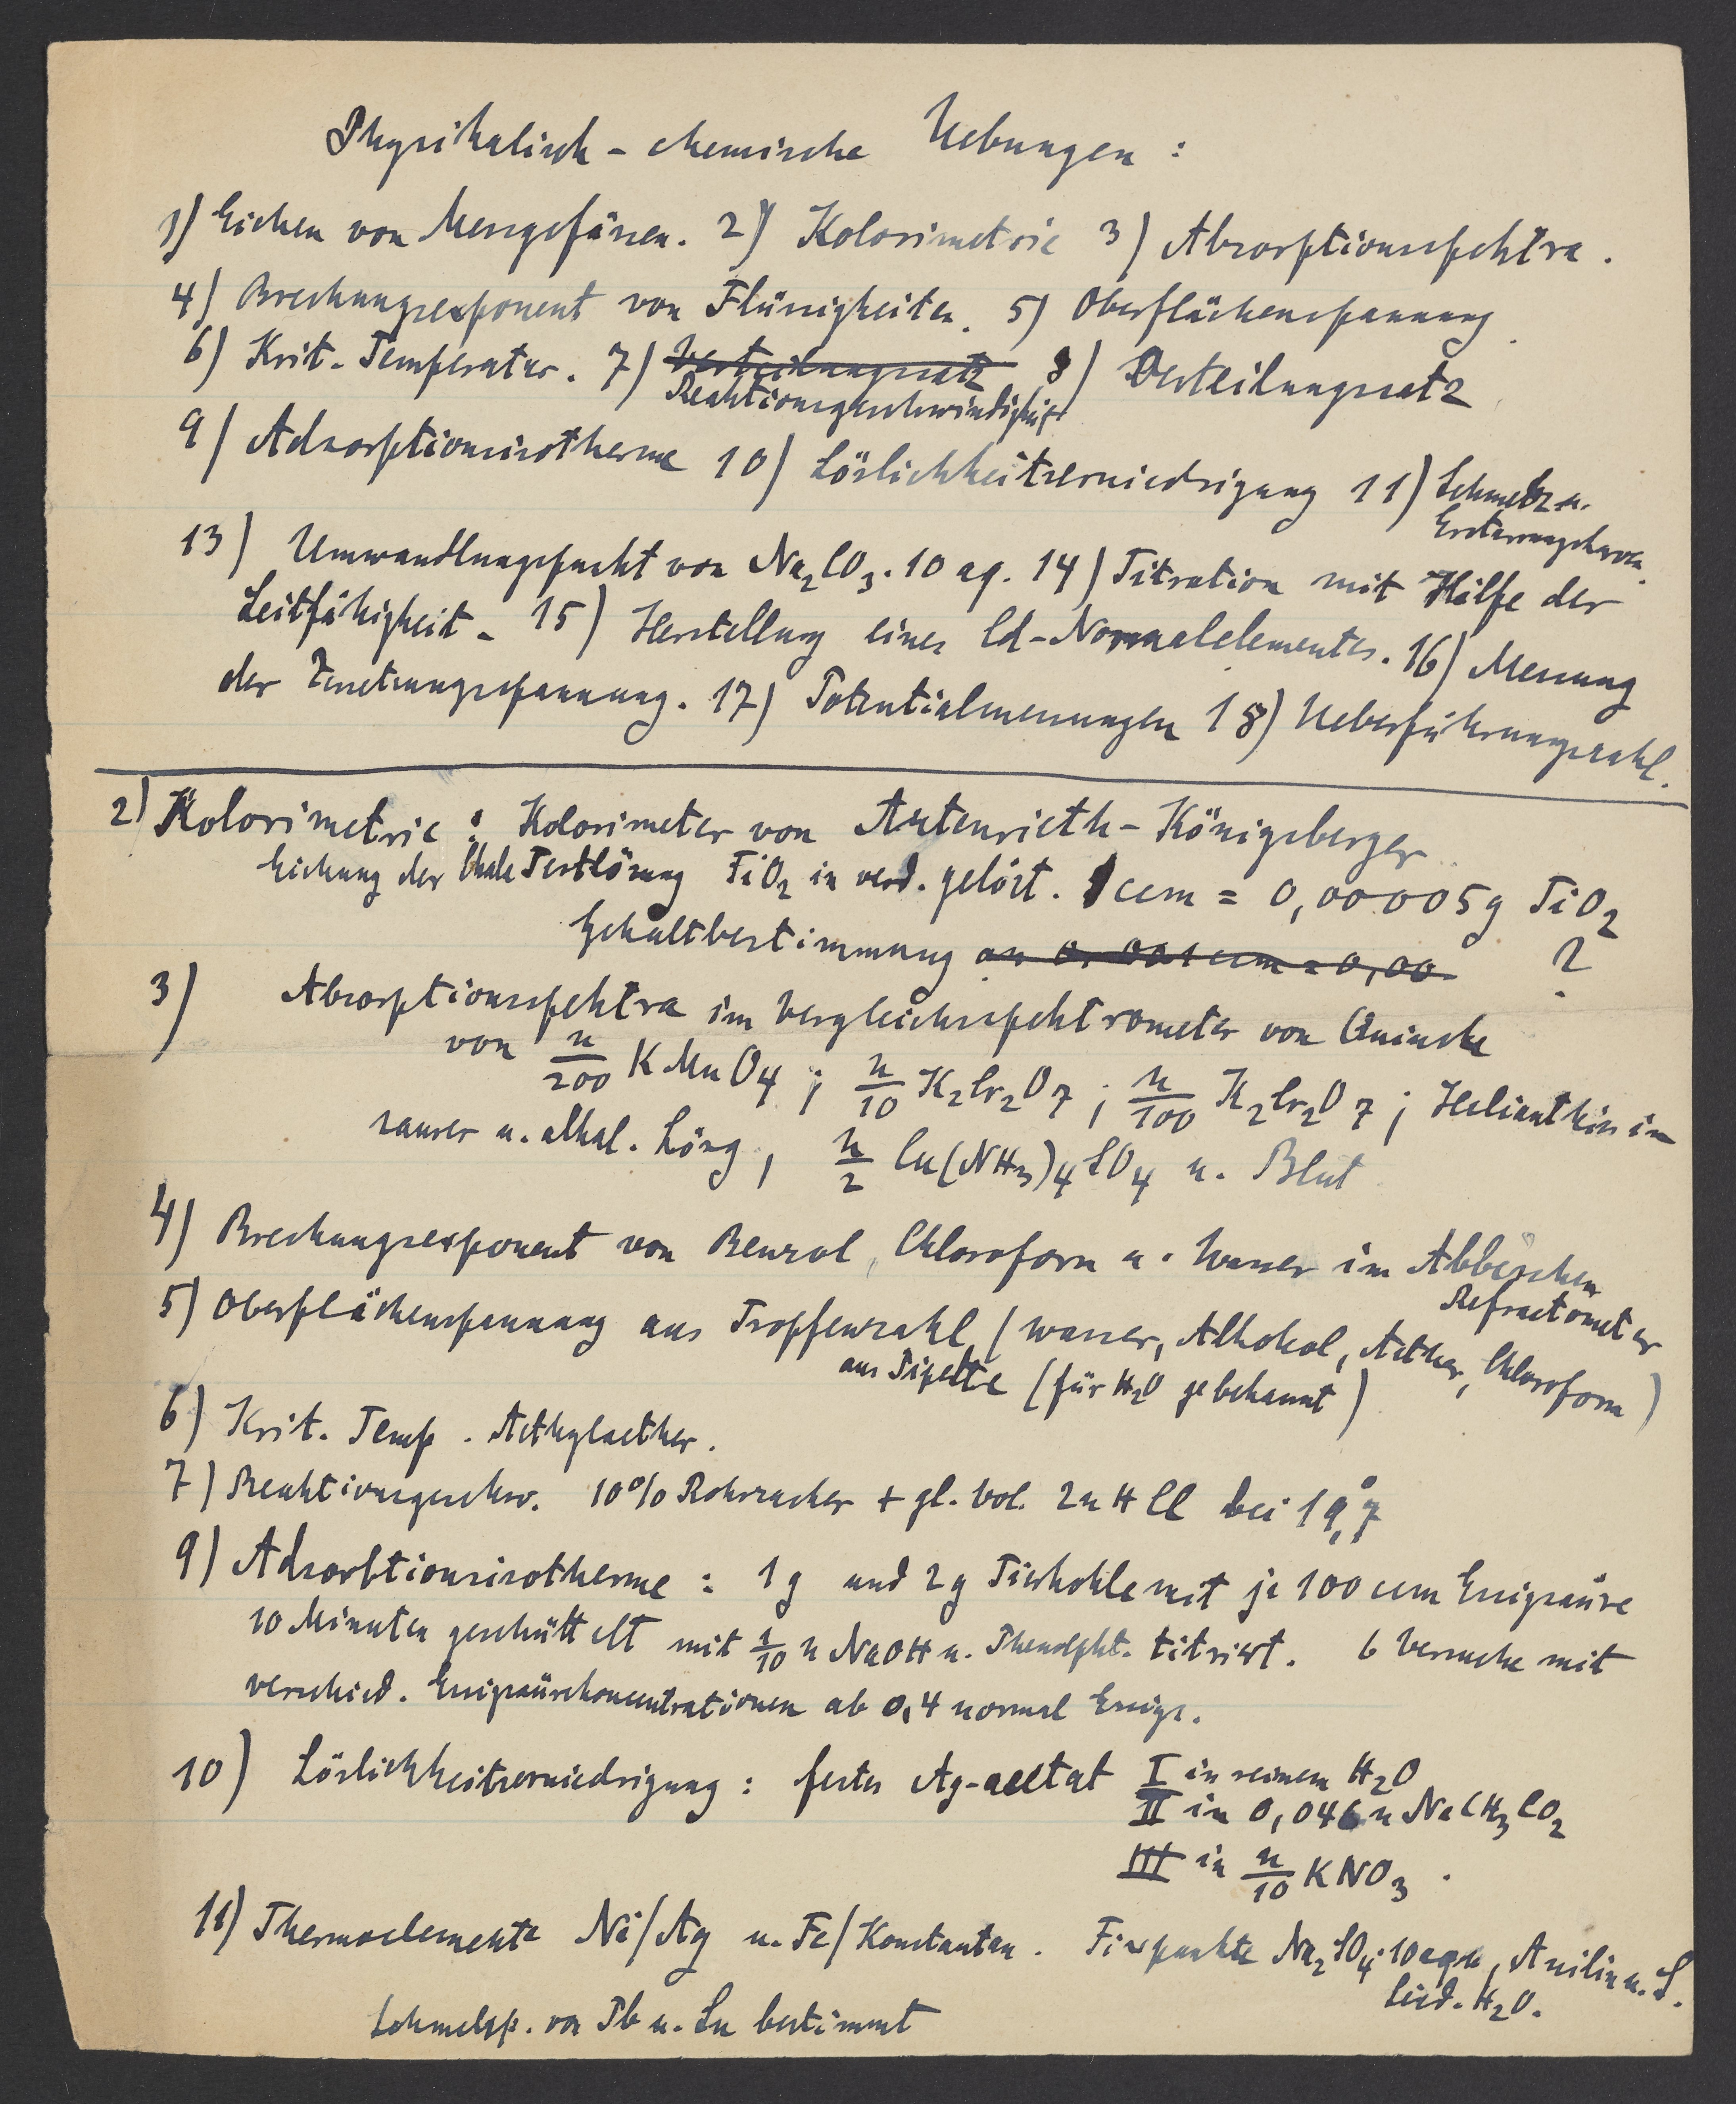 Physikalisch-chemische Uebungen:
1) Eichen von Messgefässen. 2) Kolorimetrie 3) Absorptionsspektra.
4) Brechungsexponent von Flüssigkeiten. 5) Oberflächenspannung.
6) Krit. Temperatur. 7) Verteilungssatz 8) Verteilungssatz
Reaktionsgeschwindigkeit
9) Adsorptionsisotherme 10) Löslichkeitserniedrigung 11) Schmelz u.
Erstarrungskurven.
13) Umwandlungspunkt von Na₂CO₃·10 aq. 14) Titration mit Hilfe der
Leitfähigkeit. 15) Herstellung eines Cd-Normalelementes. 16) Messung
der Zersetzungsspannung. 17) Potentialmessungen 18) Ueberführungszahl.
2) Kolorimetrie: Kolorimeter von Autenrieth-Königsberger
Eichung der Skala Testlösung TiO₂ in verd. gelöst. 1 ccm = 0,00005g TiO₂
Gehaltbestimmung an 0.001 ccm = 0,00 ?
3) Absorptionsspektra im Vergleichsspektrometer von Quincke
von n/200 KMnO₄; n/10 K₂Cr₂O₇; n/100 K₂Cr₂O₇; Helianthin in
saurer u. alkal. Lösg, n/2 Cu(NH₃)₄SO₄ u. Blut
4) Brechungsexponent von Benzol, Chloroform u. Wasser im Abbéschen
Refractometer
5) Oberflächenspannung aus Tropfenzahl (Wasser, Alkohol, Aether, Chloroform)
aus Pipette (für H₂O je bekannt)
6) Krit. Temp. Aethylaether.
7) Reaktionsgeschw. 10% Rohrzucker + gl. Vol. 2n HCl bei 19,7°
9) Adsorbtionsisotherme: 1g und 2g Tierkohle mit je 100 ccm Essigsäure
10 Minuten geschüttelt mit 1/10 n NaOH u. Phenolpht. titriert. 6 Versuche mit
verschied. Essigsäurekonzentrationen ab 0,4 normal Essigs.
10) Löslichkeitserniedrigung: festes Ag-acetat I in reinem H₂O
II in 0,046 n NaCH₃CO₂
III in n/10 KNO₃.
11) Thermoelemente Ni/Ag u. Fe/Konstantan. Fixpunkte Na₂SO₄·10aqu, Anilin u. S.
Sied. H₂O.
Schmelzp. von Pb u. Sn bestimmt